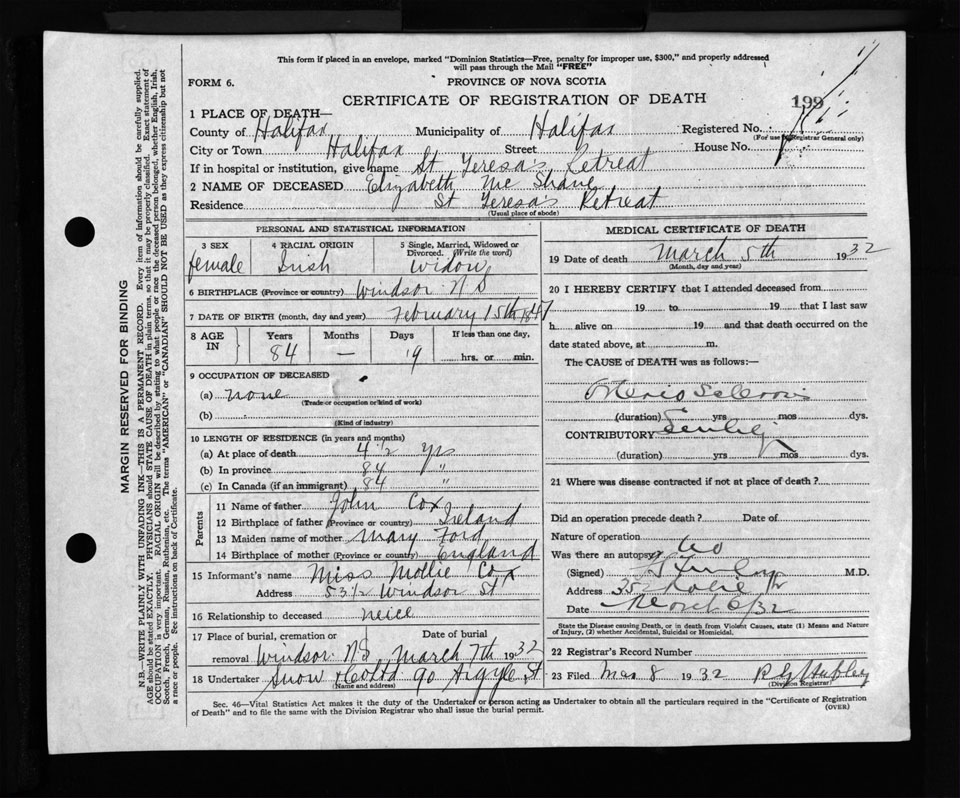 This form if placed in an envelope, marked "Dominion Statistics—Free, penalty for improper use, $300," and properly addressed
will pass through the Mail "FREE"
FORM 6.
PROVINCE OF NOVA SCOTIA
CERTIFICATE OF REGISTRATION OF DEATH
199
1 PLACE OF DEATH—
County of Halifax Municipality of Halifax Registered No.
(For use of Registrar General only)
City or Town Halifax Street House No.
If in hospital or institution, give name St Teresa's Retreat
2 NAME OF DECEASED Elizabeth Mc Shane
Residence St Teresa's Retreat
(Usual place of abode)
PERSONAL AND STATISTICAL INFORMATION
3 SEX female
4 RACIAL ORIGIN Irish
5 Single, Married, Widowed or Divorced. (Write the word) Widow
6 BIRTHPLACE (Province or country) Windsor N S
7 DATE OF BIRTH (month, day and year) February 15th 1847
8 AGE IN Years 84 Months — Days 19 If less than one day, hrs. or min.
9 OCCUPATION OF DECEASED
(a) none
(Trade or occupation or kind of work)
(b)
(Kind of industry)
10 LENGTH OF RESIDENCE (in years and months)
(a) At place of death 4 1/2 yrs
(b) In province 84 "
(c) In Canada (if an immigrant) 84 "
Parents
11 Name of father John Cox
12 Birthplace of father (Province or country) Ireland
13 Maiden name of mother Mary Ford
14 Birthplace of mother (Province or country) England
15 Informant's name Miss Mollie Cox
Address 53 1/2 Windsor St
16 Relationship to deceased neice
17 Place of burial, cremation or removal Windsor N.S. Date of burial March 7th 1932
18 Undertaker Snow & Co Ltd 90 Argyle St
(Name and address)
MEDICAL CERTIFICATE OF DEATH
19 Date of death March 5th 1932
(Month, day and year)
20 I HEREBY CERTIFY that I attended deceased from
19 to 19 that I last saw
h alive on 19 and that death occurred on the
date stated above, at m.
The CAUSE of DEATH was as follows:—
(duration) yrs mos dys.
CONTRIBUTORY
(duration) yrs mos dys.
21 Where was disease contracted if not at place of death?
Did an operation precede death? Date of
Nature of operation
Was there an autopsy? No
(Signed) M.D.
Address 35
Date March 6/32
State the Disease causing Death, or in death from Violent Causes, state (1) Means and Nature
of Injury, (2) whether Accidental, Suicidal or Homicidal.
22 Registrar's Record Number
23 Filed Mar 8 1932
(Division Registrar)
Sec. 46—Vital Statistics Act makes it the duty of the Undertaker or person acting as Undertaker to obtain all the particulars required in the "Certificate of Registration
of Death" and to file the same with the Division Registrar who shall issue the burial permit.
(OVER)
MARGIN RESERVED FOR BINDING
N.B.—WRITE PLAINLY WITH UNFADING INK—THIS IS A PERMANENT RECORD. Every item of information should be carefully supplied.
AGE should be stated EXACTLY. PHYSICIANS should STATE CAUSE OF DEATH in plain terms, so that it may be properly classified. Exact statement of
OCCUPATION is very important. RACIAL ORIGIN will be described by stating to what people or race the deceased person belonged, whether English, Irish,
Scotch, French, German, Russian, Ruthenian, etc. The terms "AMERICAN" or "CANADIAN" SHOULD NOT BE USED as they express citizenship but not
a race or people. See instructions on back of Certificate.